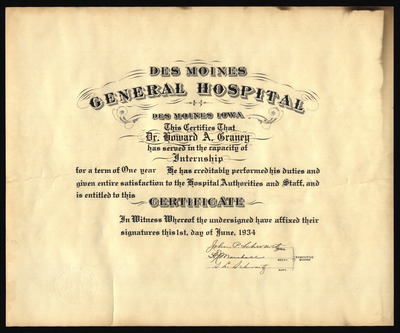 DES MOINES
GENERAL HOSPITAL
DES MOINES IOWA
This Certifies That
Dr. Howard A. Graney
has served in the capacity of
Internship
for a term of One year He has creditably performed his duties and
given entire satisfaction to the Hospital Authorities and Staff, and
is entitled to this
CERTIFICATE
In Witness Whereof the undersigned have affixed their
signatures this 1st, day of June, 1934
John P. Schwartz
Marshall
Schwartz
EXECUTIVE
BOARD